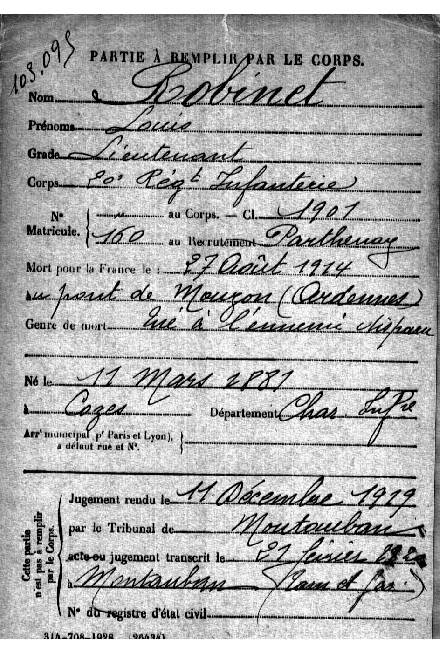 103.095
PARTIE À REMPLIR PAR LE CORPS.
Nom Robinet
Prénoms Louis
Grade Lieutenant
Corps 20e Régt Infanterie
N° Matricule. { " au Corps. — Cl. 1901
160 au Recrutement Parthenay
Mort pour la France le : 27 Août 1914
au pont de Mouzon (Ardennes)
Genre de mort Tué à l'ennemi disparu
Né le 11 Mars 1881
à Cozes Département Char. Infre
Arrt municipal (pr Paris et Lyon), à défaut rue et N°. }
Cette partie n'est pas à remplir par le Corps.
Jugement rendu le 11 Décembre 1919
par le Tribunal de Montauban
acte ou jugement transcrit le 21 février
à Montauban (Tarn et Gar.)
N° du registre d'état civil